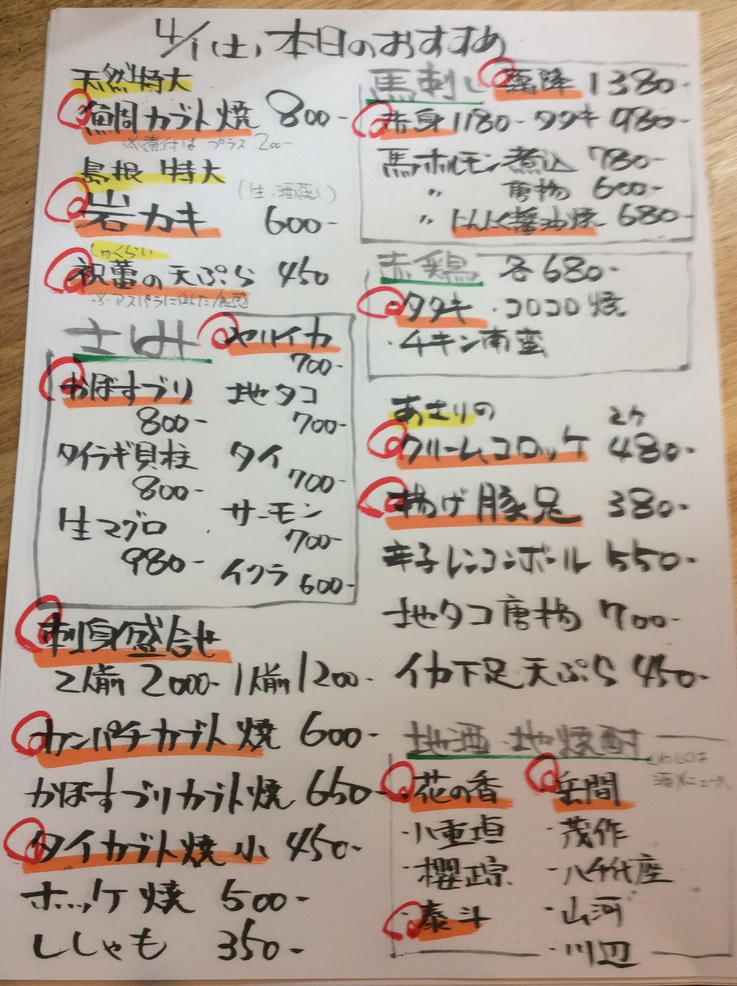 4/1(土)本日のおすすめ
天然特大
カブト焼 800-
※煮付は プラス 200-
島根 特大
(生・酒蒸し)
岩カキ 600-
しゅくらい
祝蕾の天ぷら 450
※アスパラに似た食感
さしみ
セルイカ
700-
かぼすブリ
800-
地タコ
700-
タイラギ貝柱
800-
タイ
700-
生マグロ
980-
サーモン
700-
イクラ 600-
刺身盛合せ
2人前 2000- 1人前 1200-
カンパチカブト焼 600-
かぼすブリカブト焼 650-
タイカブト焼 小 450-
ホッケ焼 500-
ししゃも 350-
馬刺し 霜降 1380-
赤身 1180- タタキ 980-
馬ホルモン煮込 780-
〃 唐揚 600-
〃 にんにく醤油焼 680-
赤鶏 各680-
・タタキ ・コロコロ焼
・チキン南蛮
あさりの 2ケ
クリームコロッケ 480-
揚げ豚足 380-
辛子レンコンボール 550-
地タコ唐揚 700-
イカ下足天ぷら 450-
地酒・地焼酎
くわしくは
酒メニューへ
・花の香 ・岳間
・八重垣 ・茂作
・櫻正宗 ・八千代座
・泰斗 ・山河
・川辺